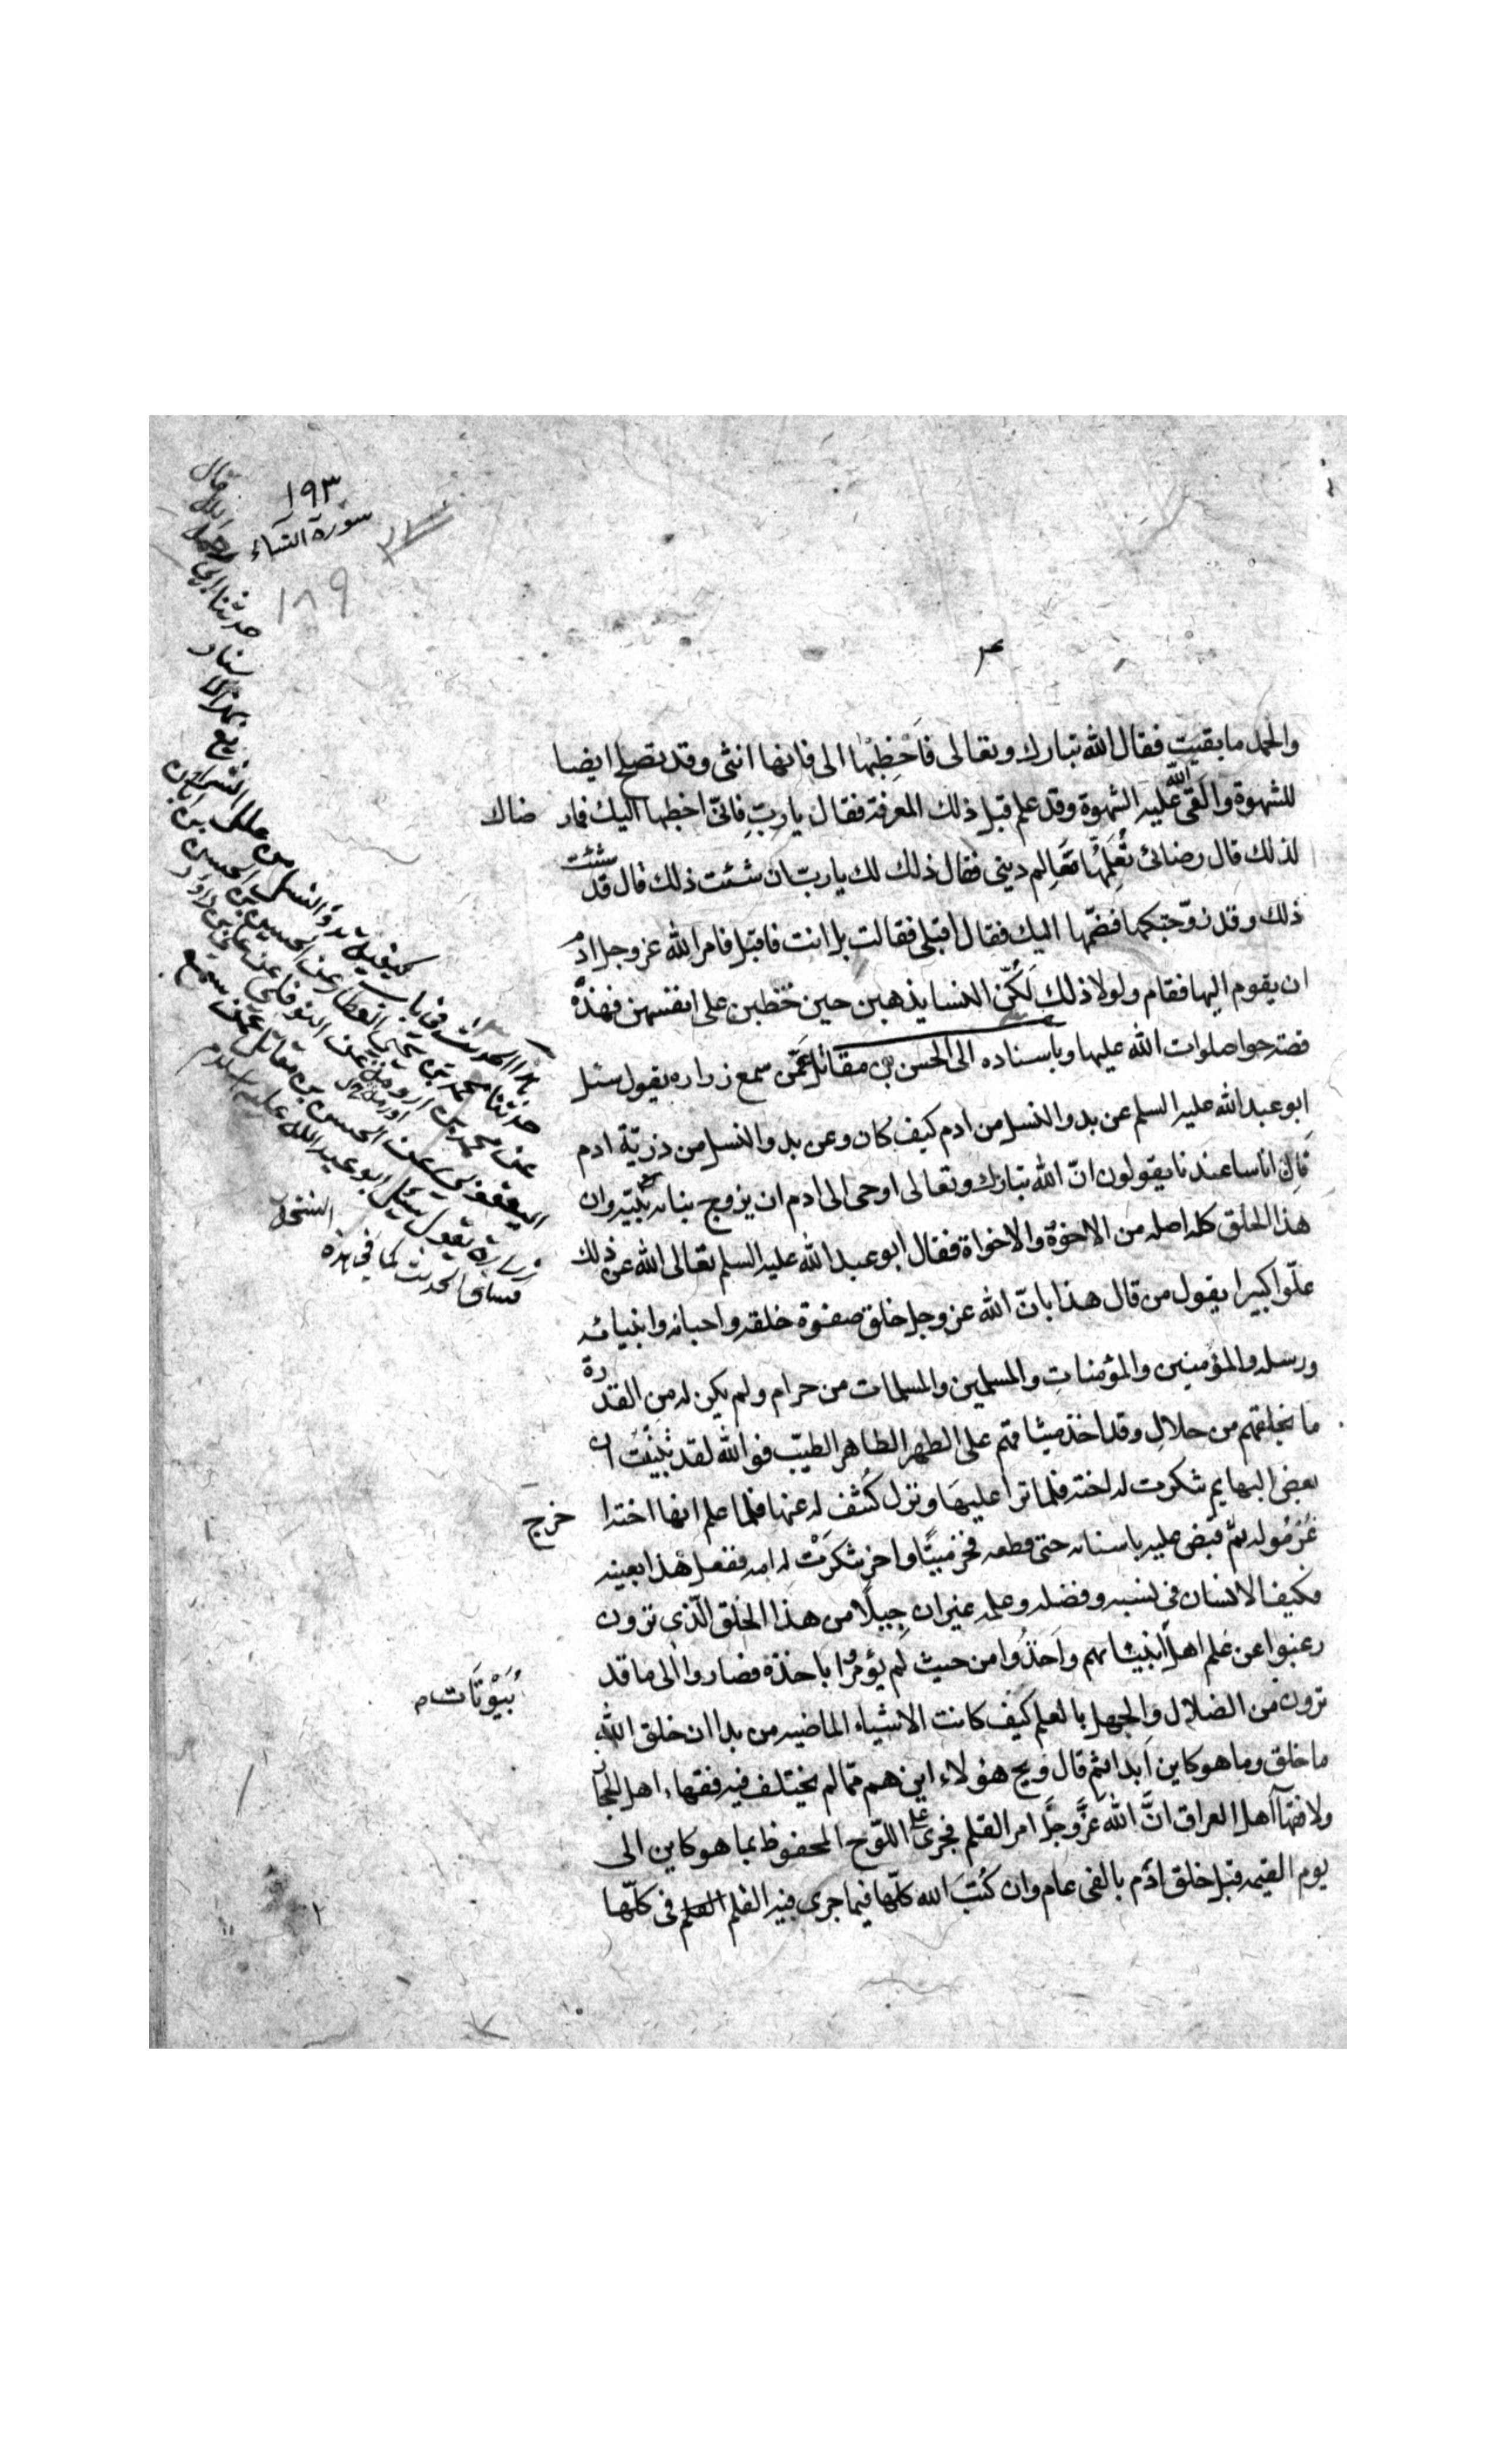 ١٩٣
سورة النساء
١٨٩
والحمد ما بقيت فقال الله تبارك وتعالى فاخطبها الى فانها انثى وقد تصلح ايضا
للشهوة والقى الله عليه الشهوة وقد علم قبل ذلك المعرفة فقال يا ربّ فانى اخطبها اليك فما رضاك
لذلك قال رضائى تعلّمها معالم دينى فقال ذلك لك يا ربّ ان شئت ذلك قال قد شئت
ذلك وقد زوّجتكها فضمّها اليك فقال اقبلى فقالت بل انت فاقبل فامر الله عز وجل ادم
ان يقوم اليها فقام ولولا ذلك لكنّ النسا يذهبن حين خطبن على انفسهن فهذه
قصة حوا صلوات الله عليها وباسناده الى الحسن بن مقاتل عمّن سمع زراره يقول سئل
ابو عبد الله عليه السلم عن بدو النسل من ادم كيف كان وعن بدو النسل من ذريّة ادم
فان اناسا عندنا يقولون انّ الله تبارك وتعالى اوحى الى ادم ان يزوج بناته ببنيه وان
هذا الخلق كله اصله من الاخوة والاخواة فقال ابو عبد الله عليه السلم تعالى الله عن ذلك
علّوا كبيرا يقول من قال هذا بانّ الله عز وجل خلق صفوة خلقه واحبائه وانبيائه
ورسله والمؤمنين والمؤمنات والمسلمين والمسلمات من حرام ولم يكن له من القدرة
ما يخلقهم من حلال وقد اخذ ميثاقهم على الطهر الطاهر الطيّب فو الله لقد نبئت ان
بعض البهايم تنكرت له اخته فلما نزا عليها ونزل كُشف له عنها فلما علم انها اخته اخرج
غُرْمُوله ثمّ قبض عليه باسنانه حتى قطعه فخرّ ميتًا واخر تنكرت له امه ففعل هذا بعينه
فكيف الانسان فى نسبه وفضله وعلمه غير ان جيلًا من هذا الخلق الّذى ترون
رغبوا عن علم اهل ابنيثاتهم واخذوا من حيث لم يؤمروا باخذه فصاروا الى ما قد
بُيُوْتَات
ترون من الضلال والجهل بالعلم كيف كانت الاشياء الماضيه من بدا ان خلق الله
ما خلق وما هو كاين ابدا ثم قال ويح هؤلاء اين هم ممّا لم يختلف فيه فقهاء اهل الحجاز
ولا فقهآ اهل العراق انّ الله عزّ وجلّ امر القلم فجرى على اللوح المحفوظ بما هو كاين الى
يوم القيمه قبل خلق ادم بالفى عام وان كُتبَ الله كلّها فيما جرى فيه القلم فى كلّها
هذا الحديث فى باب كيفية بدؤ النسل من علل الشرائع بهذا الاسناد حدثنا ابى رحمه الله قال
حدثنا محمد بن يحيى العطار عن الحسين بن الحسن بن ابان
عن محمد بن اورمة عن النوفلى عن على بن داود
اليعقوبى عن الحسن بن مقاتل عمن سمع
زرارة يقول سئل ابو عبد الله عليه السلام
وساق الحديث كما فى هذه